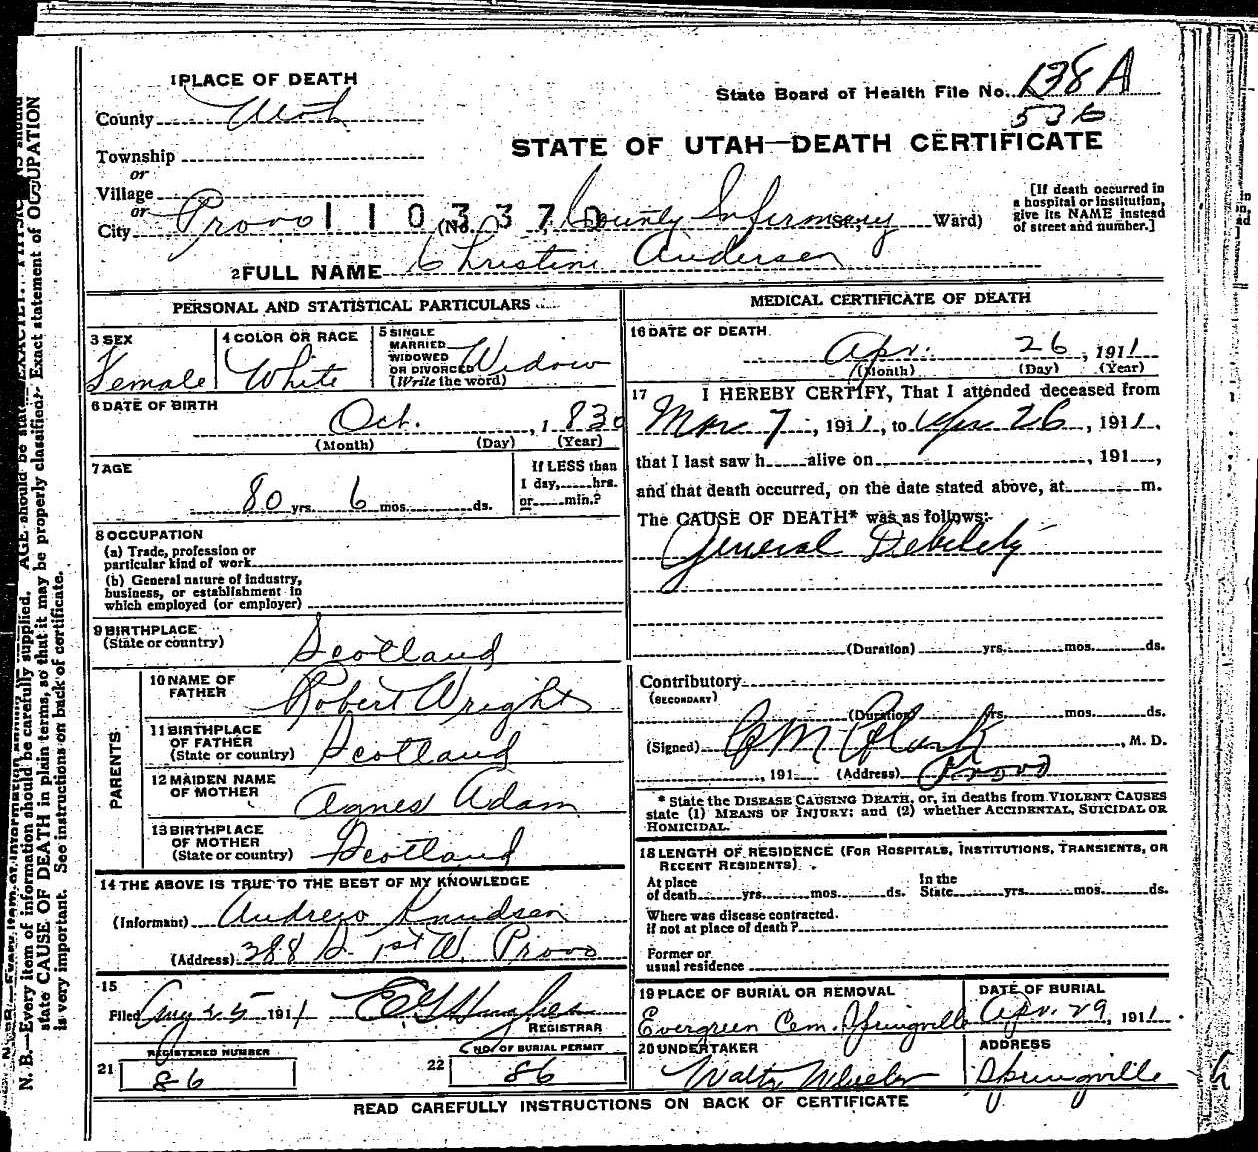 1 PLACE OF DEATH
County Utah
Township
or
Village
or
City Provo (No. County Infirmary St., Ward)
1103370
State Board of Health File No. 138 A
536
STATE OF UTAH—DEATH CERTIFICATE
[If death occurred in
a hospital or institution,
give its NAME instead
of street and number.]
2 FULL NAME Christine Andersen
PERSONAL AND STATISTICAL PARTICULARS
3 SEX
Female
4 COLOR OR RACE
White
5 SINGLE
MARRIED
WIDOWED
OR DIVORCED
(Write the word)
Widow
6 DATE OF BIRTH
Oct. , 1830
(Month) (Day) (Year)
7 AGE
80 yrs. 6 mos. ds.
If LESS than
1 day, hrs.
or min.?
8 OCCUPATION
(a) Trade, profession or
particular kind of work
(b) General nature of industry,
business, or establishment in
which employed (or employer)
9 BIRTHPLACE
(State or country)
Scotland
PARENTS
10 NAME OF
FATHER
Robert Wright
11 BIRTHPLACE
OF FATHER
(State or country)
Scotland
12 MAIDEN NAME
OF MOTHER
Agnes Adam
13 BIRTHPLACE
OF MOTHER
(State or country)
Scotland
14 THE ABOVE IS TRUE TO THE BEST OF MY KNOWLEDGE
(Informant) Andrew Knudsen
(Address) 388 S. 1st W. Provo
15
Filed Aug 25 1911
REGISTRAR
REGISTERED NUMBER
21 86
NO. OF BURIAL PERMIT
22 86
MEDICAL CERTIFICATE OF DEATH
16 DATE OF DEATH
Apr. 26, 1911
(Month) (Day) (Year)
17 I HEREBY CERTIFY, That I attended deceased from
Mar 7, 1911, to Apr 26, 1911,
that I last saw h alive on , 191 ,
and that death occurred, on the date stated above, at m.
The CAUSE OF DEATH* was as follows:
General Debility
(Duration) yrs. mos. ds.
Contributory
(SECONDARY)
(Duration) yrs. mos. ds.
(Signed) Clark, M. D.
, 191 (Address) Provo
* State the DISEASE CAUSING DEATH, or, in deaths from VIOLENT CAUSES
state (1) MEANS OF INJURY; and (2) whether ACCIDENTAL, SUICIDAL OR
HOMICIDAL.
18 LENGTH OF RESIDENCE (FOR HOSPITALS, INSTITUTIONS, TRANSIENTS, OR
RECENT RESIDENTS).
At place
of death yrs. mos. ds.
In the
State yrs. mos. ds.
Where was disease contracted.
if not at place of death?
Former or
usual residence
19 PLACE OF BURIAL OR REMOVAL
Evergreen Cem. Springville
DATE OF BURIAL
Apr. 29, 1911.
20 UNDERTAKER
Walter Wheeler
ADDRESS
Springville
READ CAREFULLY INSTRUCTIONS ON BACK OF CERTIFICATE
N. B.—Every item of information should be carefully supplied. AGE should be stated EXACTLY.
state CAUSE OF DEATH in plain terms, so that it may be properly classified. Exact statement of OCCUPATION
is very important. See instructions on back of certificate.